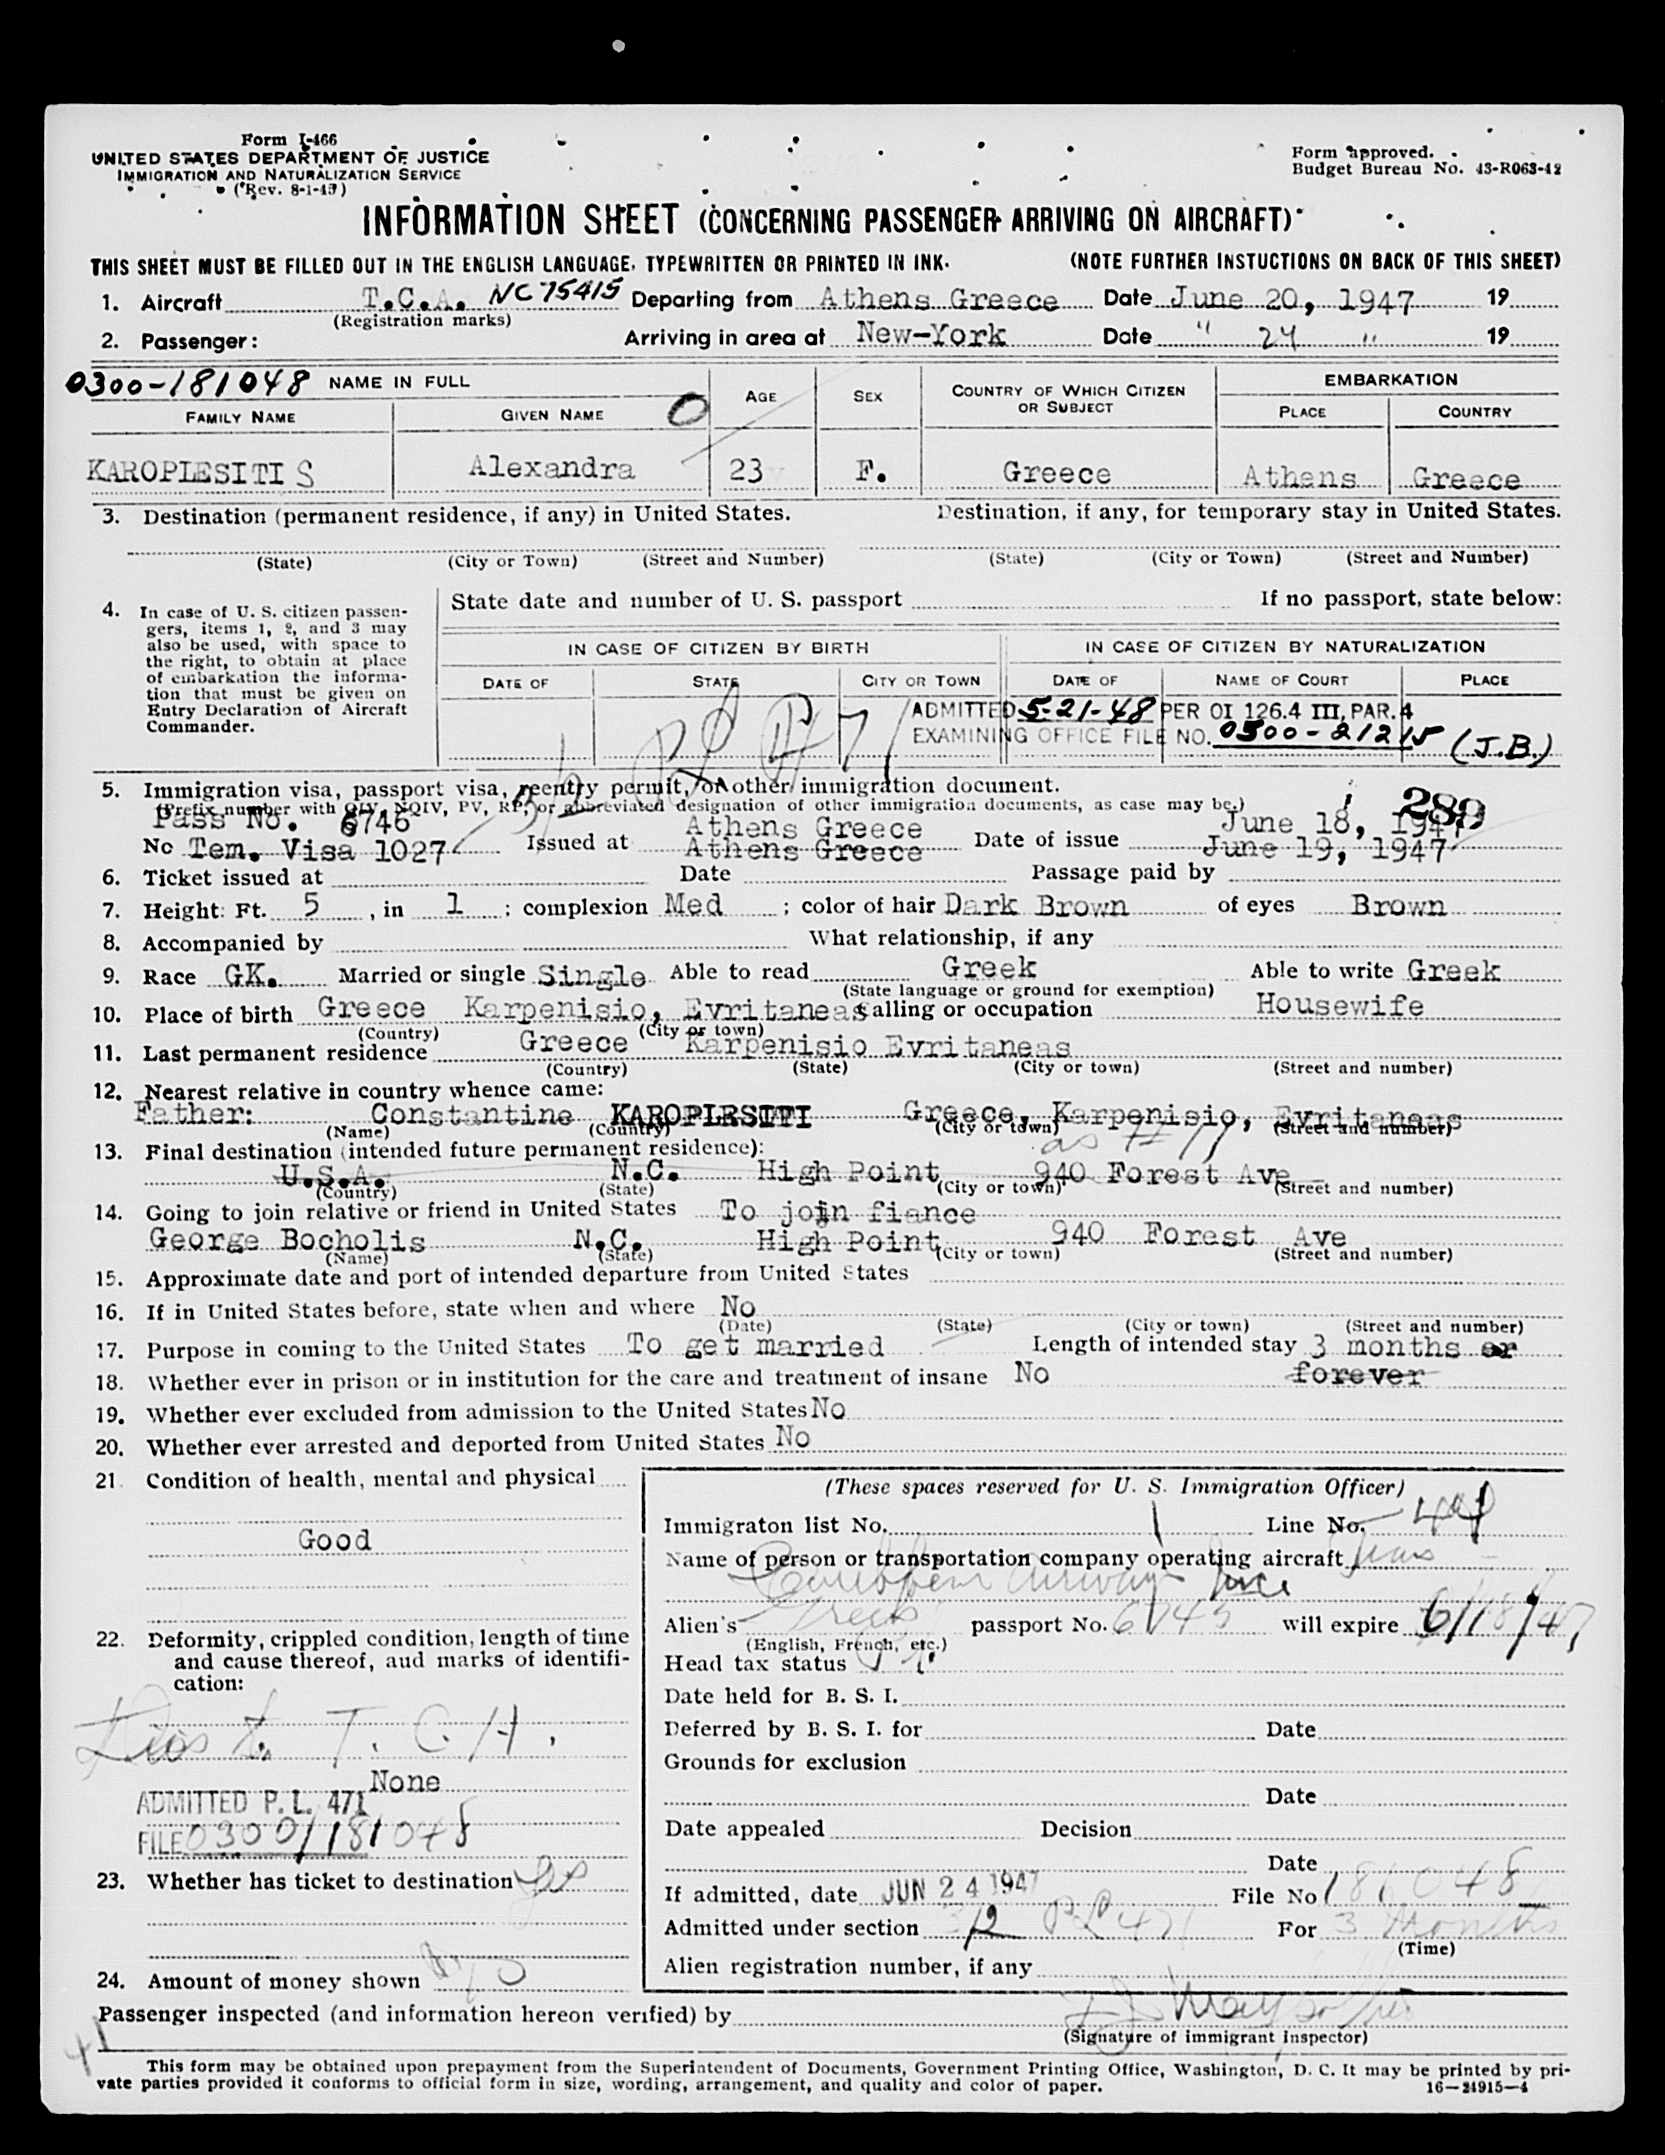 Form I-466
UNITED STATES DEPARTMENT OF JUSTICE
IMMIGRATION AND NATURALIZATION SERVICE
(Rev. 8-1-45)
Form approved.
Budget Bureau No. 43-R063-42
INFORMATION SHEET (CONCERNING PASSENGER ARRIVING ON AIRCRAFT)
THIS SHEET MUST BE FILLED OUT IN THE ENGLISH LANGUAGE, TYPEWRITTEN OR PRINTED IN INK. (NOTE FURTHER INSTUCTIONS ON BACK OF THIS SHEET)
1. Aircraft T.C.A. NC 75415 Departing from Athens Greece Date June 20, 1947 19
(Registration marks)
2. Passenger: Arriving in area at New-York Date " 24 " 19
0300-181048 NAME IN FULL AGE SEX COUNTRY OF WHICH CITIZEN OR SUBJECT EMBARKATION
FAMILY NAME GIVEN NAME PLACE COUNTRY
KAROPLESITI S Alexandra 23 F. Greece Athens Greece
3. Destination (permanent residence, if any) in United States. Destination, if any, for temporary stay in United States.
(State) (City or Town) (Street and Number) (State) (City or Town) (Street and Number)
4. In case of U. S. citizen passen-
gers, items 1, 2, and 3 may
also be used, with space to
the right, to obtain at place
of embarkation the informa-
tion that must be given on
Entry Declaration of Aircraft
Commander.
State date and number of U. S. passport If no passport, state below:
IN CASE OF CITIZEN BY BIRTH IN CASE OF CITIZEN BY NATURALIZATION
DATE OF STATE CITY OR TOWN DATE OF NAME OF COURT PLACE
PL 471
ADMITTED 5-21-48 PER OI 126.4 III, PAR. 4
EXAMINING OFFICE FILE NO. 0300-21215 (J.B.)
5. Immigration visa, passport visa, reentry permit, or other immigration document.
(Prefix number with QIV, NQIV, PV, RP, or abbreviated designation of other immigration documents, as case may be.) 289
Pass No. 6746 Athens Greece June 18, 1947
No Tem. Visa 1027 Issued at Athens Greece Date of issue June 19, 1947
6. Ticket issued at Date Passage paid by
7. Height: Ft. 5 , in 1 ; complexion Med ; color of hair Dark Brown of eyes Brown
8. Accompanied by What relationship, if any
9. Race GK. Married or single Single Able to read Greek Able to write Greek
(State language or ground for exemption)
10. Place of birth Greece Karpenisio, Evritaneas Calling or occupation Housewife
(Country) (City or town)
11. Last permanent residence Greece Karpenisio Evritaneas
(Country) (State) (City or town) (Street and number)
12. Nearest relative in country whence came:
Father: Constantine KAROPLESITI Greece, Karpenisio, Evritaneas
(Name) (Country) (City or town) (Street and number)
as # 11
13. Final destination (intended future permanent residence):
U.S.A. N.C. High Point 940 Forest Ave
(Country) (State) (City or town) (Street and number)
14. Going to join relative or friend in United States To join fiance
George Bocholis N.C. High Point 940 Forest Ave
(Name) (State) (City or town) (Street and number)
15. Approximate date and port of intended departure from United States
16. If in United States before, state when and where No
(Date) (State) (City or town) (Street and number)
17. Purpose in coming to the United States To get married Length of intended stay 3 months or
18. Whether ever in prison or in institution for the care and treatment of insane No forever
19. Whether ever excluded from admission to the United States No
20. Whether ever arrested and deported from United States No
21. Condition of health, mental and physical
Good
22. Deformity, crippled condition, length of time
and cause thereof, and marks of identifi-
cation:
T. C. H.
None
ADMITTED P. L. 471
FILE 0300/181048
23. Whether has ticket to destination yes
24. Amount of money shown
(These spaces reserved for U. S. Immigration Officer)
Immigraton list No. 1 Line No.
Name of person or transportation company operating aircraft Trans
Caribbean Airways Inc.
Alien's Greek passport No. 6745 will expire 6/18/47
(English, French, etc.)
Head tax status
Date held for B. S. I.
Deferred by B. S. I. for Date
Grounds for exclusion
Date
Date appealed Decision
Date
If admitted, date JUN 24 1947 File No 181048
Admitted under section PL 471 For 3 Months
(Time)
Alien registration number, if any
Passenger inspected (and information hereon verified) by
(Signature of immigrant inspector)
41
This form may be obtained upon prepayment from the Superintendent of Documents, Government Printing Office, Washington, D. C. It may be printed by pri-
vate parties provided it conforms to official form in size, wording, arrangement, and quality and color of paper. 16—24915-4